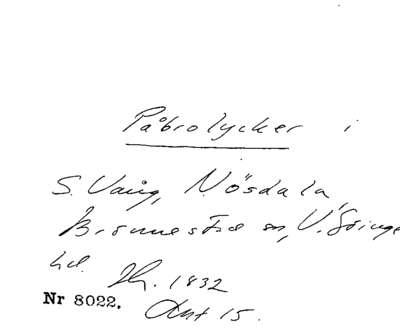 Påbrolycker i
S. Vång, N. Ösdala,
Brönnestad sn, V. Göinge
hd. Sk. 1832
Nr 8022. Ant 15.